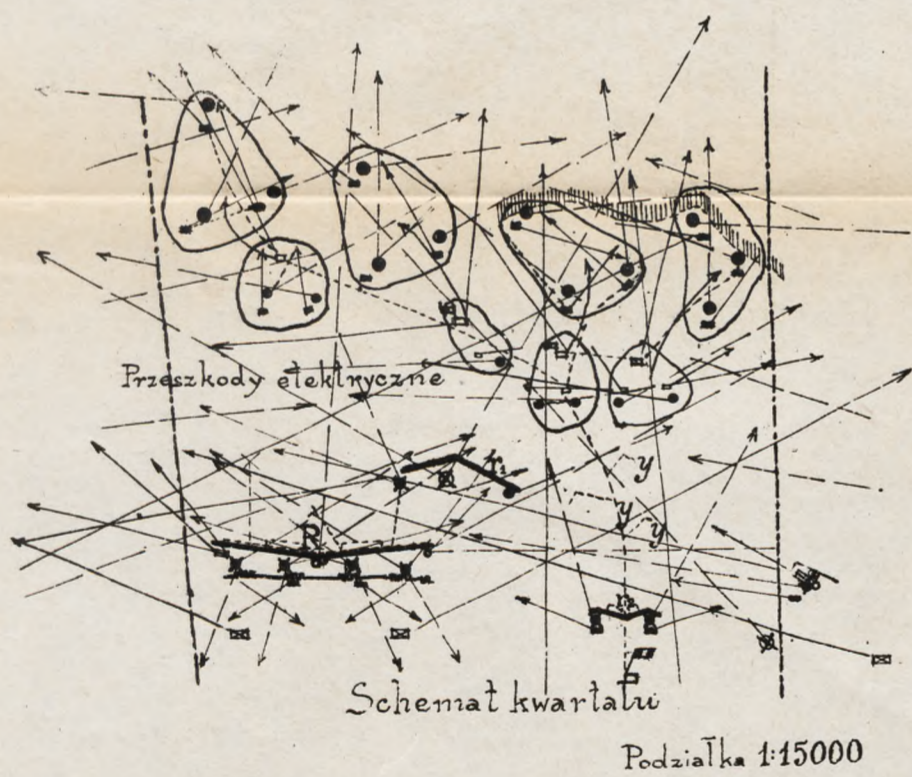 Przeszkody elektryczne
r₁
y
y
y
R
r₂
Schemat kwartału
Podziałka 1:15000